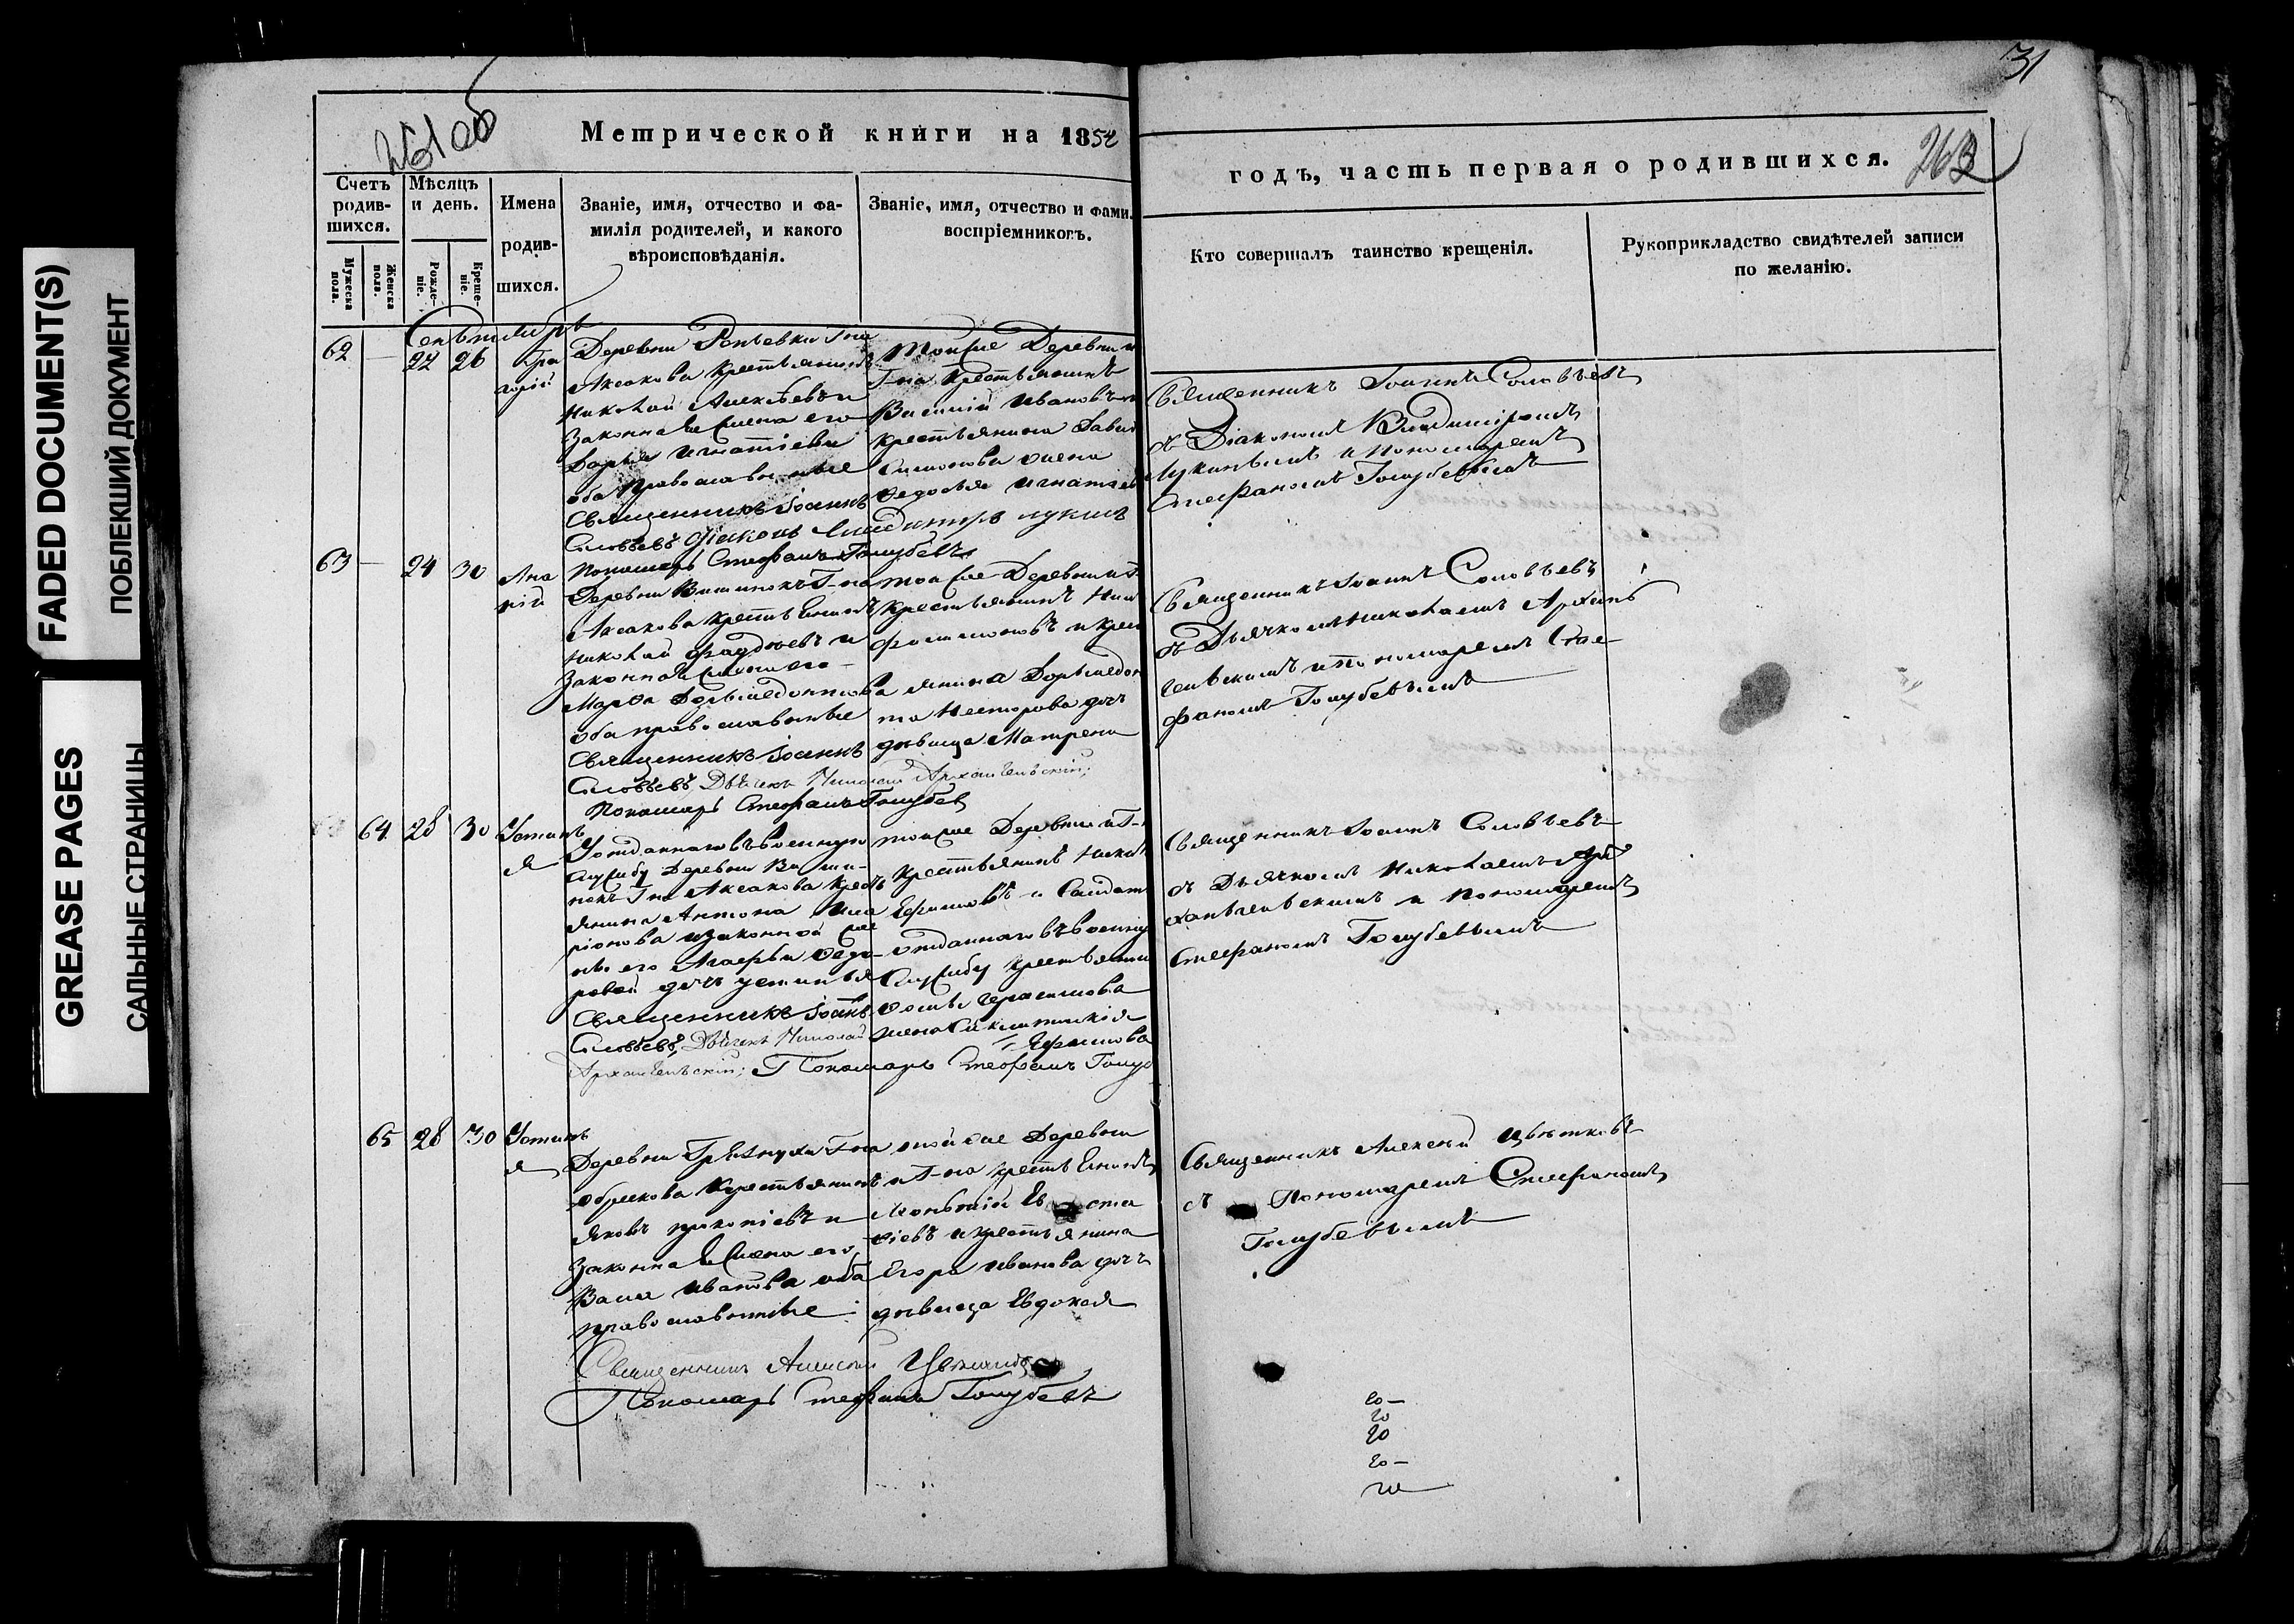 FADED DOCUMENT(S)
ПОБЛЕКШИЙ ДОКУМЕНТ
GREASE PAGES
САЛЬНЫЕ СТРАНИЦЫ
31
Метрической книги на 1852
годъ, часть первая о родившихся.
263
Счетъ родив-шихся.
Мужеска пола.
Женска пола.
Мѣсяцъ и день.
Рожде-ніе.
Креще-ніе.
Имена родив-шихся.
Званіе, имя, отчество и фа-
милія родителей, и какого
вѣроисповѣданія.
Званіе, имя, отчество и фами.
воспріемниковъ.
Кто совершалъ таинство крещенія.
Рукоприкладство свидѣтелей записи
по желанію.
Сентябрь
62 — 22 26 Гри
горій
Деревни Г-на
Аксакова крестьянинъ
Николай Алексѣевъ и
Законная жена его
Дарья Игнатіева
оба православные
Священникъ Іоаннъ
Соловьевъ Діаконъ Владимиръ Лукинъ
Пономарь Стефанъ Голубевъ
Тойже Деревни и
Г-на крестьянинъ
Василій Ивановъ и
крестьянина Давыд
Симонова жена
Федосья Игнатіев
Священникъ Іоаннъ Соловьевъ
съ Діакономъ Владиміромъ
Лукинымъ и Пономаремъ
Стефаномъ Голубевымъ
63 — 24 30 Ана
ній
Деревни Вишинокъ Г-на
Аксакова крестьянинъ
Николай Фадѣевъ и
Законная жена его
Марѳа Дормедонтова
оба православные
Священникъ Іоаннъ
Соловьевъ Дьячекъ Николай Архангельскій;
Пономарь Стефанъ Голубев
тоя же Деревни и Г-
крестьянинъ
Филимоновъ и крес
янина Дормедон
та Несторова дочь
дѣвица Матрена
Священникъ Іоаннъ Соловьевъ
съ Дьячкомъ Николаемъ Архан
гельскимъ и Пономаремъ Сте-
фаномъ Голубевымъ
64 28 30 Устинь
я
У отданнаго въ военную
службу Деревни Виши-
нокъ Г-на Аксакова кресть
янина Антона Ила
ріонова и законной же
ны его Агафьи Ѳедо-
ровой дочь Устинья
Священникъ Іоаннъ
Соловьевъ, Дьячекъ Николай
Архангельскій; Пономарь Стефанъ Голуб
тойже Деревни и Г-н
крестьянинъ
Ефимовъ и Солдат
отданнаго въ военную
Службу крестьянин
Герасимова
жена
Ефимова
Священникъ Іоаннъ Соловьевъ
съ Дьячкомъ Николаемъ Ар
хангельскимъ и Пономаремъ
Стефаномъ Голубевымъ
65 28 30 Устинь
я
Деревни Грязнухи Г-на
Обрескова Крестьянинъ
Яковъ Прокопіевъ и
Законная жена его
Васса Иванова оба
православные
Священникъ Алексій Цвѣтковъ
Пономарь Стефанъ Голубевъ
тойже Деревни
и Г-на крестьянинъ
Леонтій Ев ста
фіевъ и крестьянина
Егора Иванова дочь
дѣвица Евдокія
Священникъ Алексѣй Цвѣтковъ
съ Пономаремъ Стефаномъ
Голубевымъ
20 —
20
20
20 —